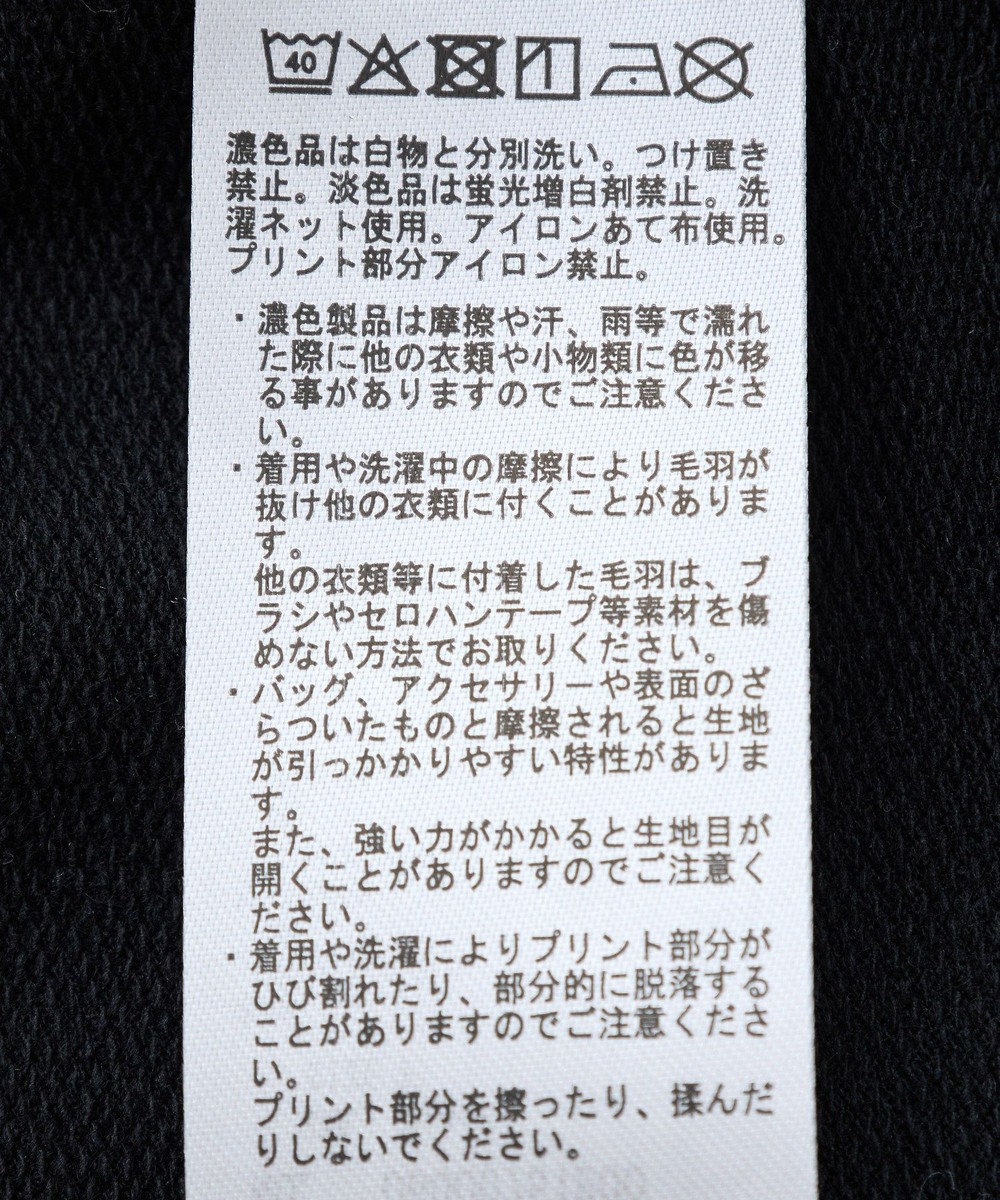 40
濃色品は白物と分別洗い。つけ置き
禁止。淡色品は蛍光増白剤禁止。洗
濯ネット使用。アイロンあて布使用。
プリント部分アイロン禁止。
・濃色製品は摩擦や汗、雨等で濡れ
た際に他の衣類や小物類に色が移
る事がありますのでご注意くださ
い。
・着用や洗濯中の摩擦により毛羽が
抜け他の衣類に付くことがありま
す。
他の衣類等に付着した毛羽は、ブ
ラシやセロハンテープ等素材を傷
めない方法でお取りください。
・バッグ、アクセサリーや表面のざ
らついたものと摩擦されると生地
が引っかかりやすい特性がありま
す。
また、強い力がかかると生地目が
開くことがありますのでご注意く
ださい。
・着用や洗濯によりプリント部分が
ひび割れたり、部分的に脱落する
ことがありますのでご注意くださ
い。
プリント部分を擦ったり、揉んだ
りしないでください。